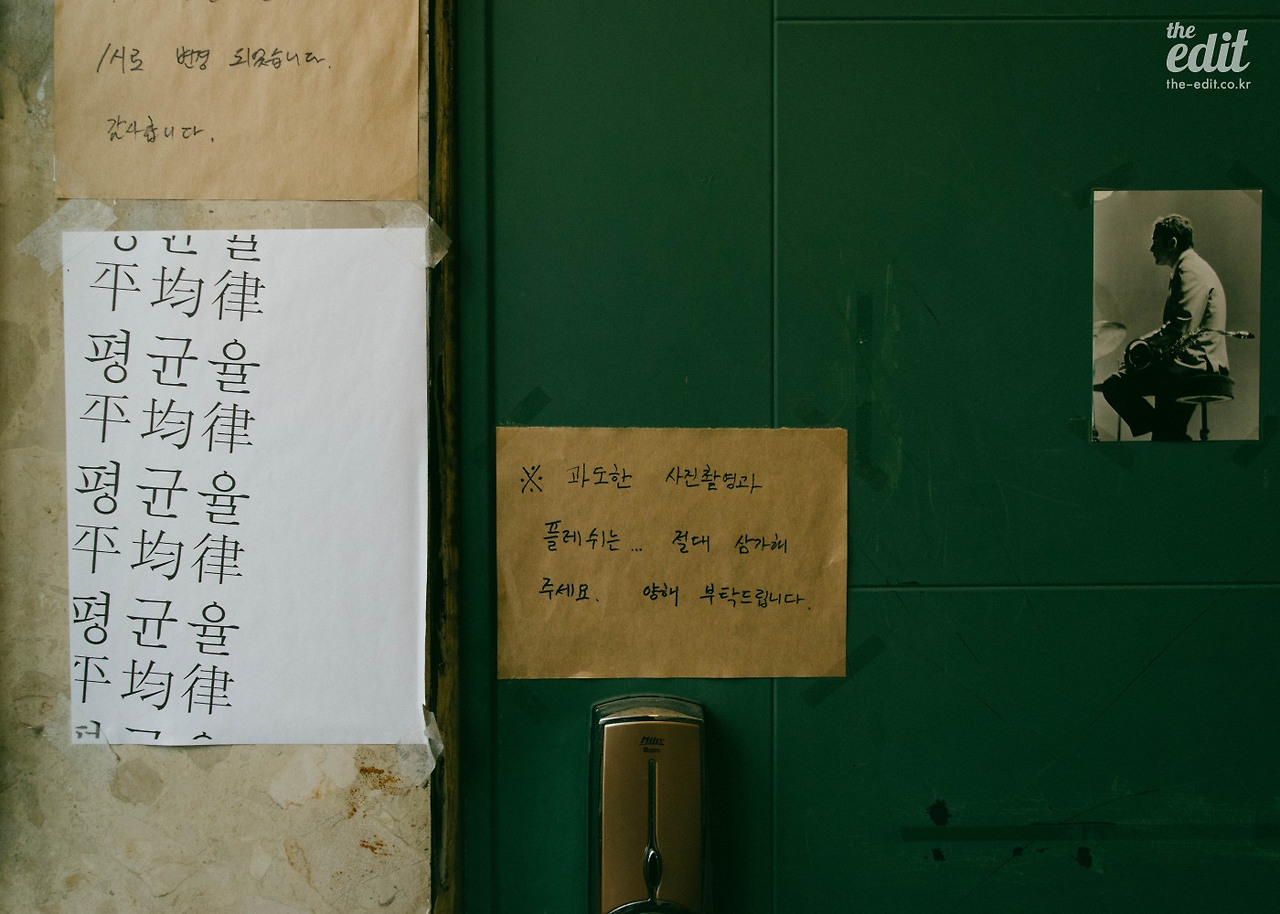 1시로 변경 되었습니다.
감사합니다.
평균율
平均律
평균율
平均律
평균율
平均律
평균율
平均律
※ 과도한 사진촬영과
플레쉬는... 절대 삼가해
주세요. 양해 부탁드립니다.
the
edit
the-edit.co.kr